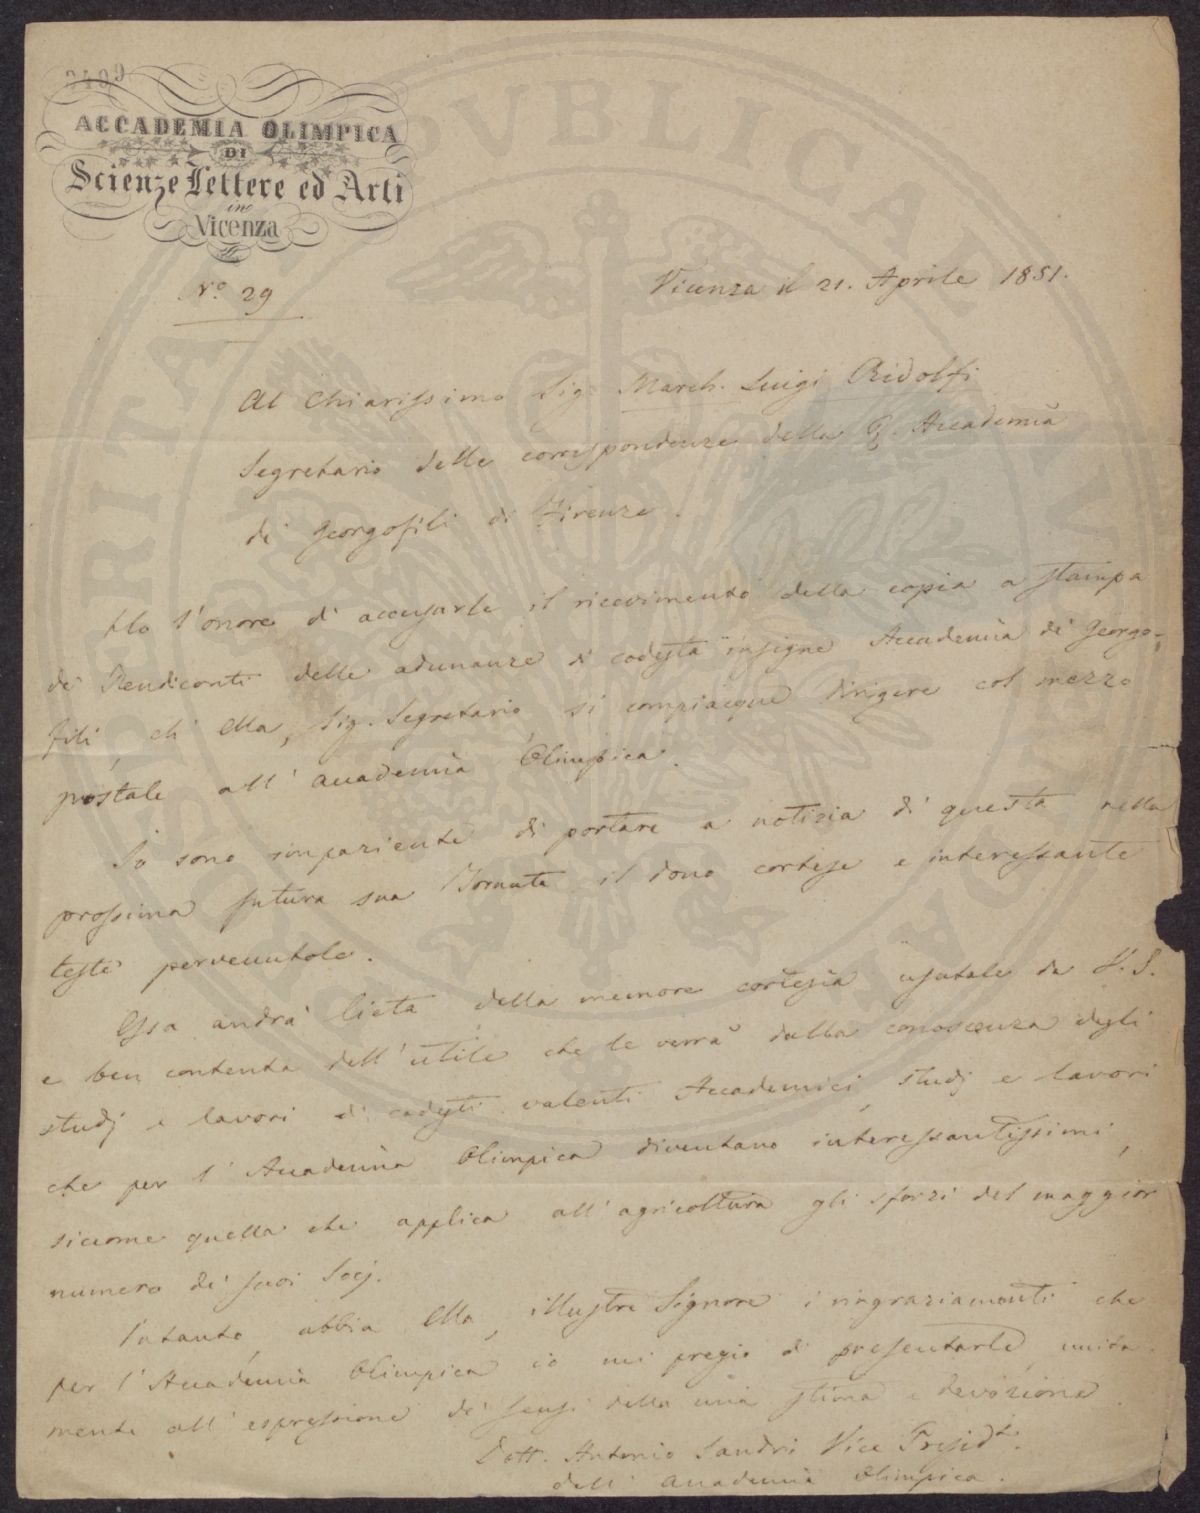 ACCADEMIA OLIMPICA
DI
Scienze Lettere ed Arti
in
Vicenza
N.º 29
Vicenza il 21. Aprile 1851.
Al Chiarissimo Sig. March. Luigi Ridolfi
Segretario delle corrispondenze della R. Accademia
di Georgofili di Firenze.
Ho l'onore di accusarle il ricevimento della copia a stampa
dei Rendiconti delle adunanze di codesta insigne Accademia di Georgo-
fili, ch' Ella, Sig. Segretario, si compiacque dirigere col mezzo
postale all' Accademia Olimpica.
Io sono impaziente di portare a notizia di questa nella
prossima futura sua Tornata il dono cortese e interessante
testè pervenutole.
Essa andrà lieta della memore cortesia usatale da V. S.
e ben contenta dell' utile che le verrà dalla conoscenza degli
studj e lavori di codesti valenti Accademici, studj e lavori
che per l' Accademia Olimpica diventano interessantissimi,
siccome quella che applica all' agricoltura gli sforzi del maggior
numero de' suoi Socj.
Intanto, abbia Ella, illustre Signore i ringraziamenti che
per l' Accademia Olimpica io mi pregio di presentarle, unita-
mente all' espressione de' sensi della mia stima e devozione
Dott. Antonio Sandri Vice Presid.e
dell' Accademia Olimpica.